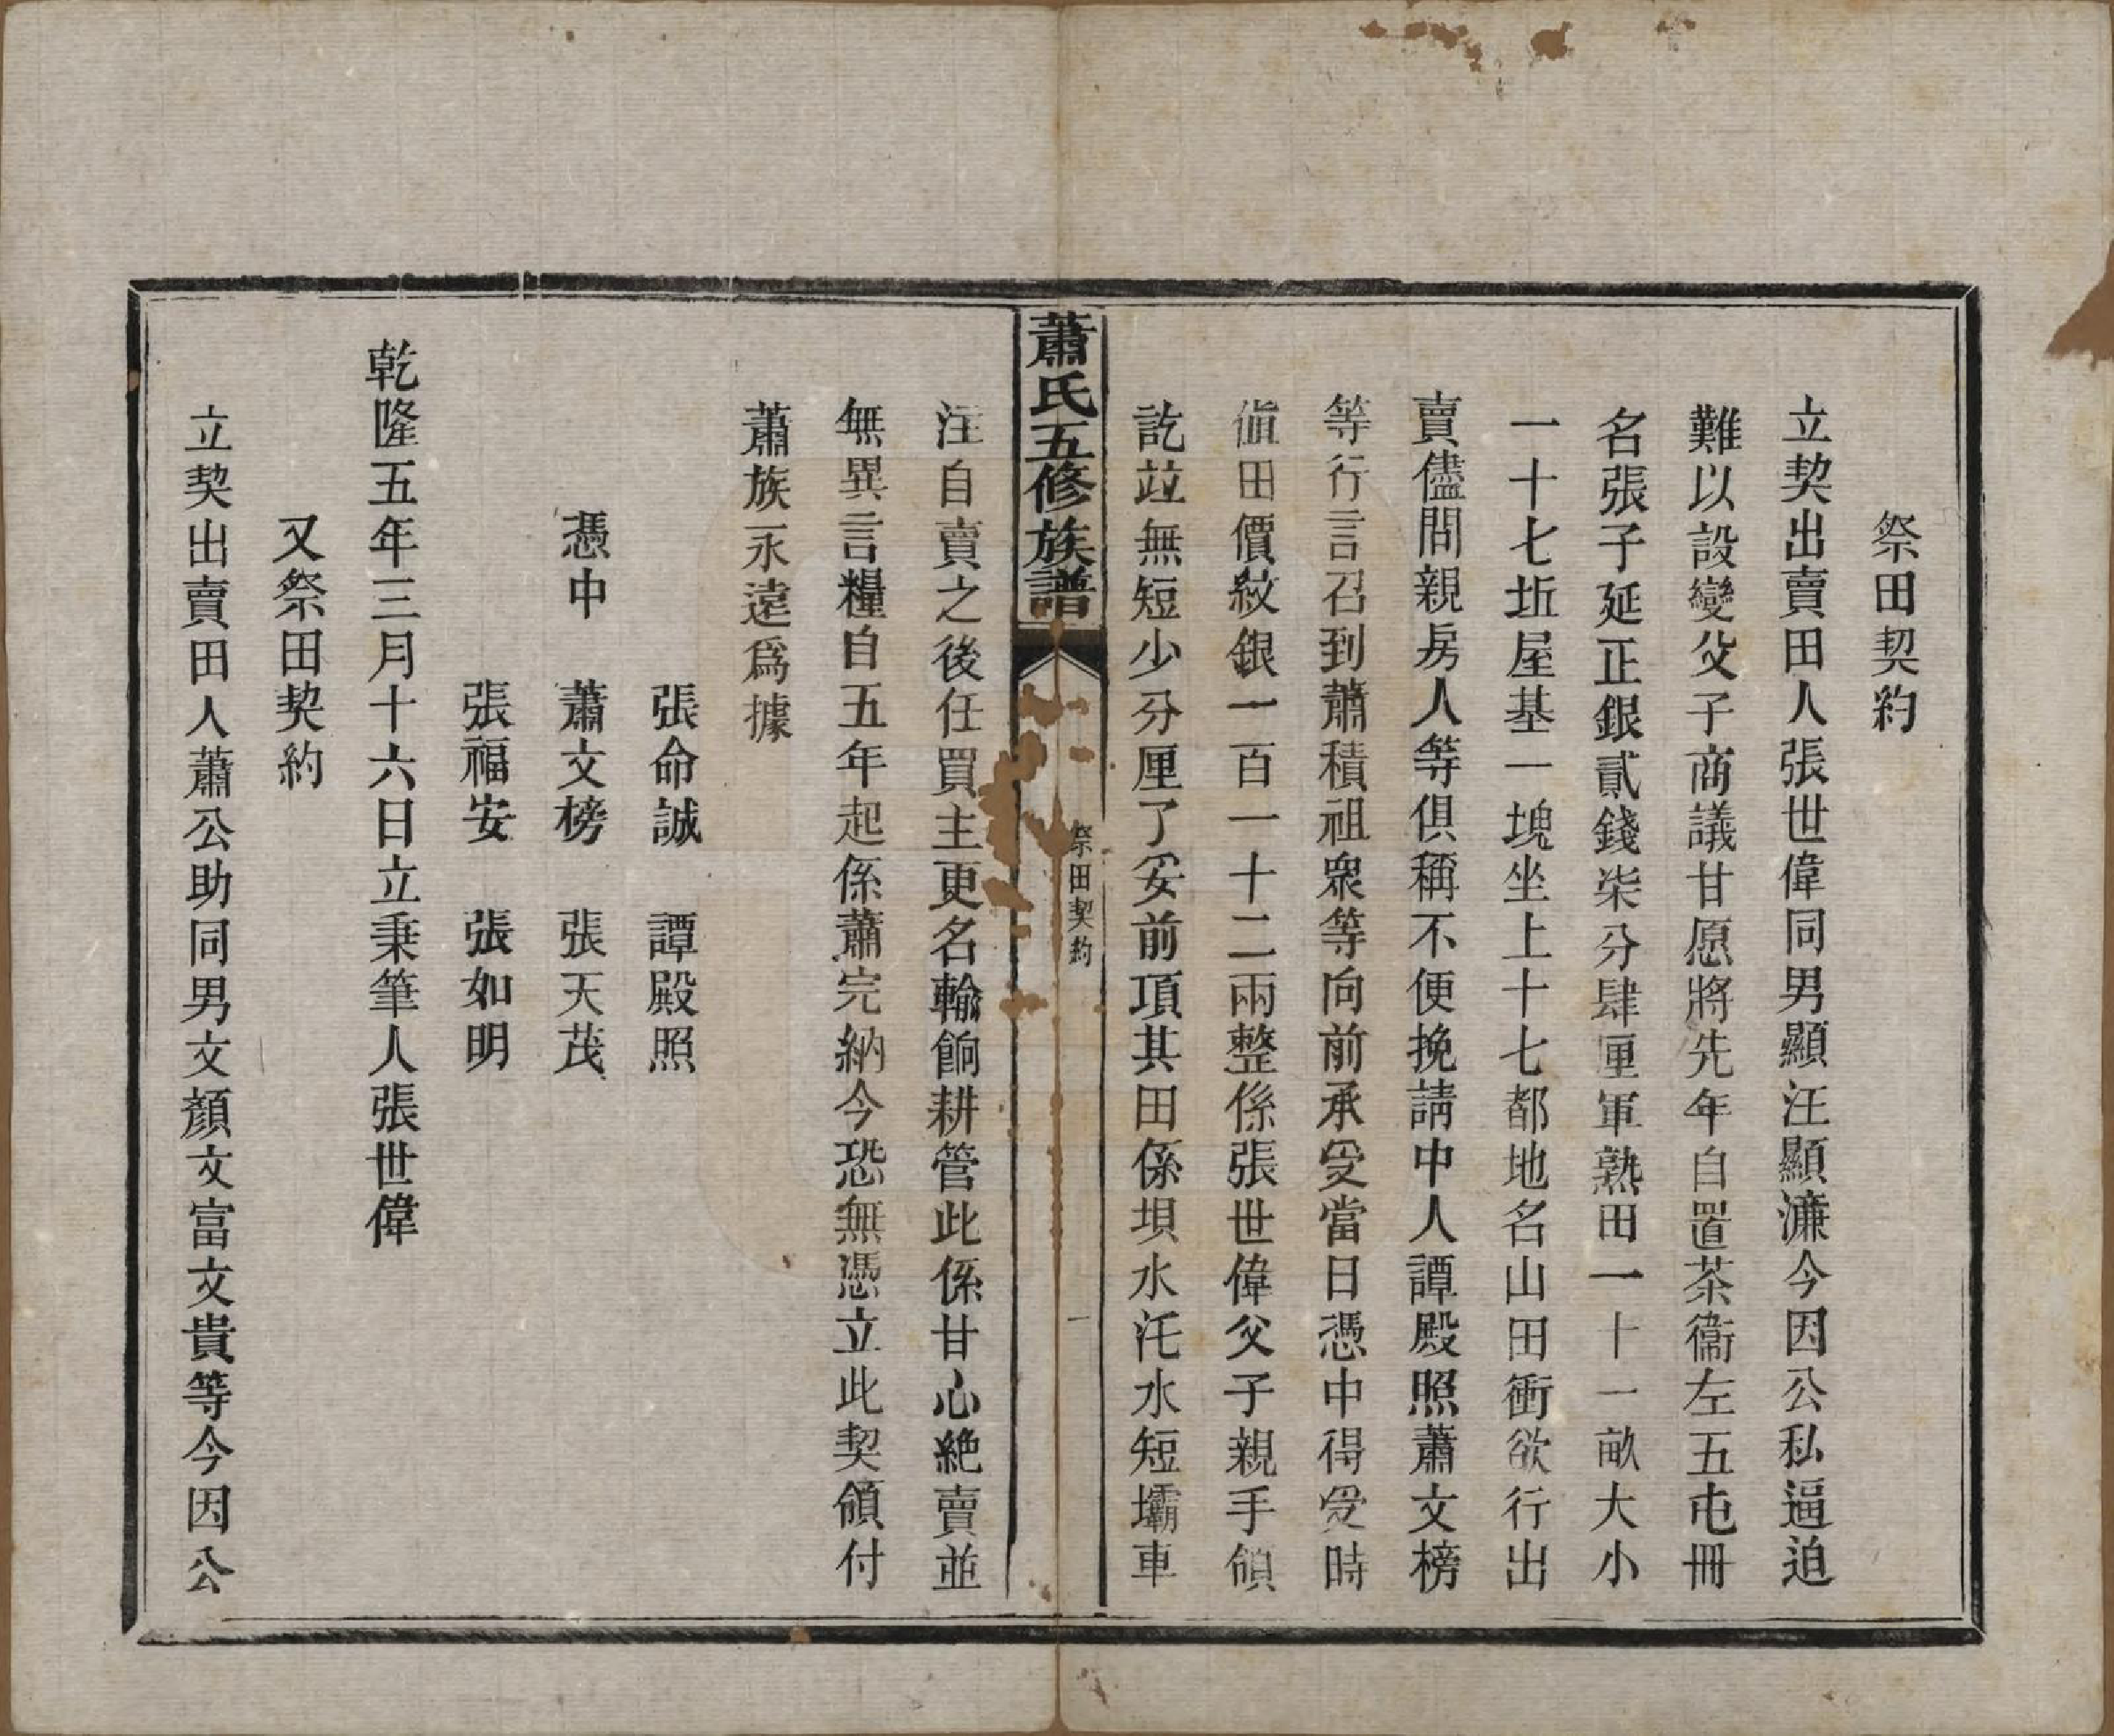 祭田契約
立契出賣田人張世偉同男顯汪顯濂今因公私逼迫
難以設變父子商議甘愿將先年自置茶衞左五屯冊
名張子延正銀貳錢柒分肆厘軍熟田一十一畝大小
一十七坵屋基一塊坐上十七都地名山田衝欲行出
賣儘問親房人等俱稱不便挽請中人譚殿照蕭文榜
等行言召到蕭積祖眾等向前承受當日憑中得受時
值田價紋銀一百一十二兩整係張世偉父子親手領
訖竝無短少分厘了妥前項其田係垻水汑水短壩車
蕭氏五修族譜
祭田契約
一
注自賣之後任買主更名輸餉耕管此係甘心絶賣並
無異言糧自五年起係蕭完納今恐無憑立此契領付
蕭族永遠爲據
張命誠 譚殿照
憑中 蕭文榜 張天茂
張福安 張如明
乾隆五年三月十六日立秉筆人張世偉
又祭田契約
立契出賣田人蕭公助同男文顏文富文貴等今因公